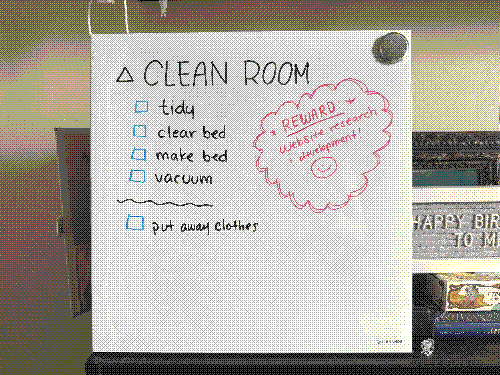 △ CLEAN ROOM
tidy
clear bed
make bed
vacuum
put away clothes
* REWARD *
website research
& development!
HAPPY BIR
TO M